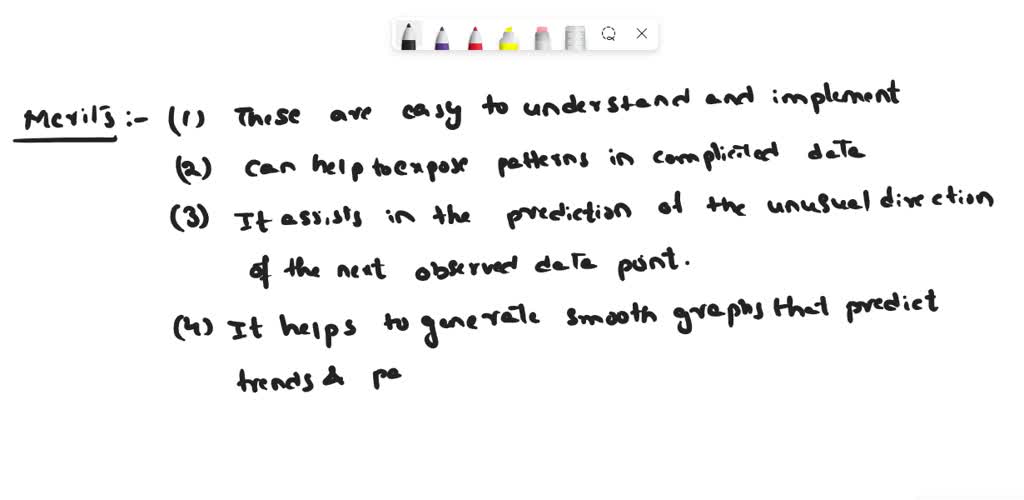 Merits :- (1) These are easy to understand and implement
(2) Can help to expose patterns in complicited data
(3) It assists in the prediction of the unusual direction
of the next observed data point.
(4) It helps to generate smooth graphs that predict
trends & pa